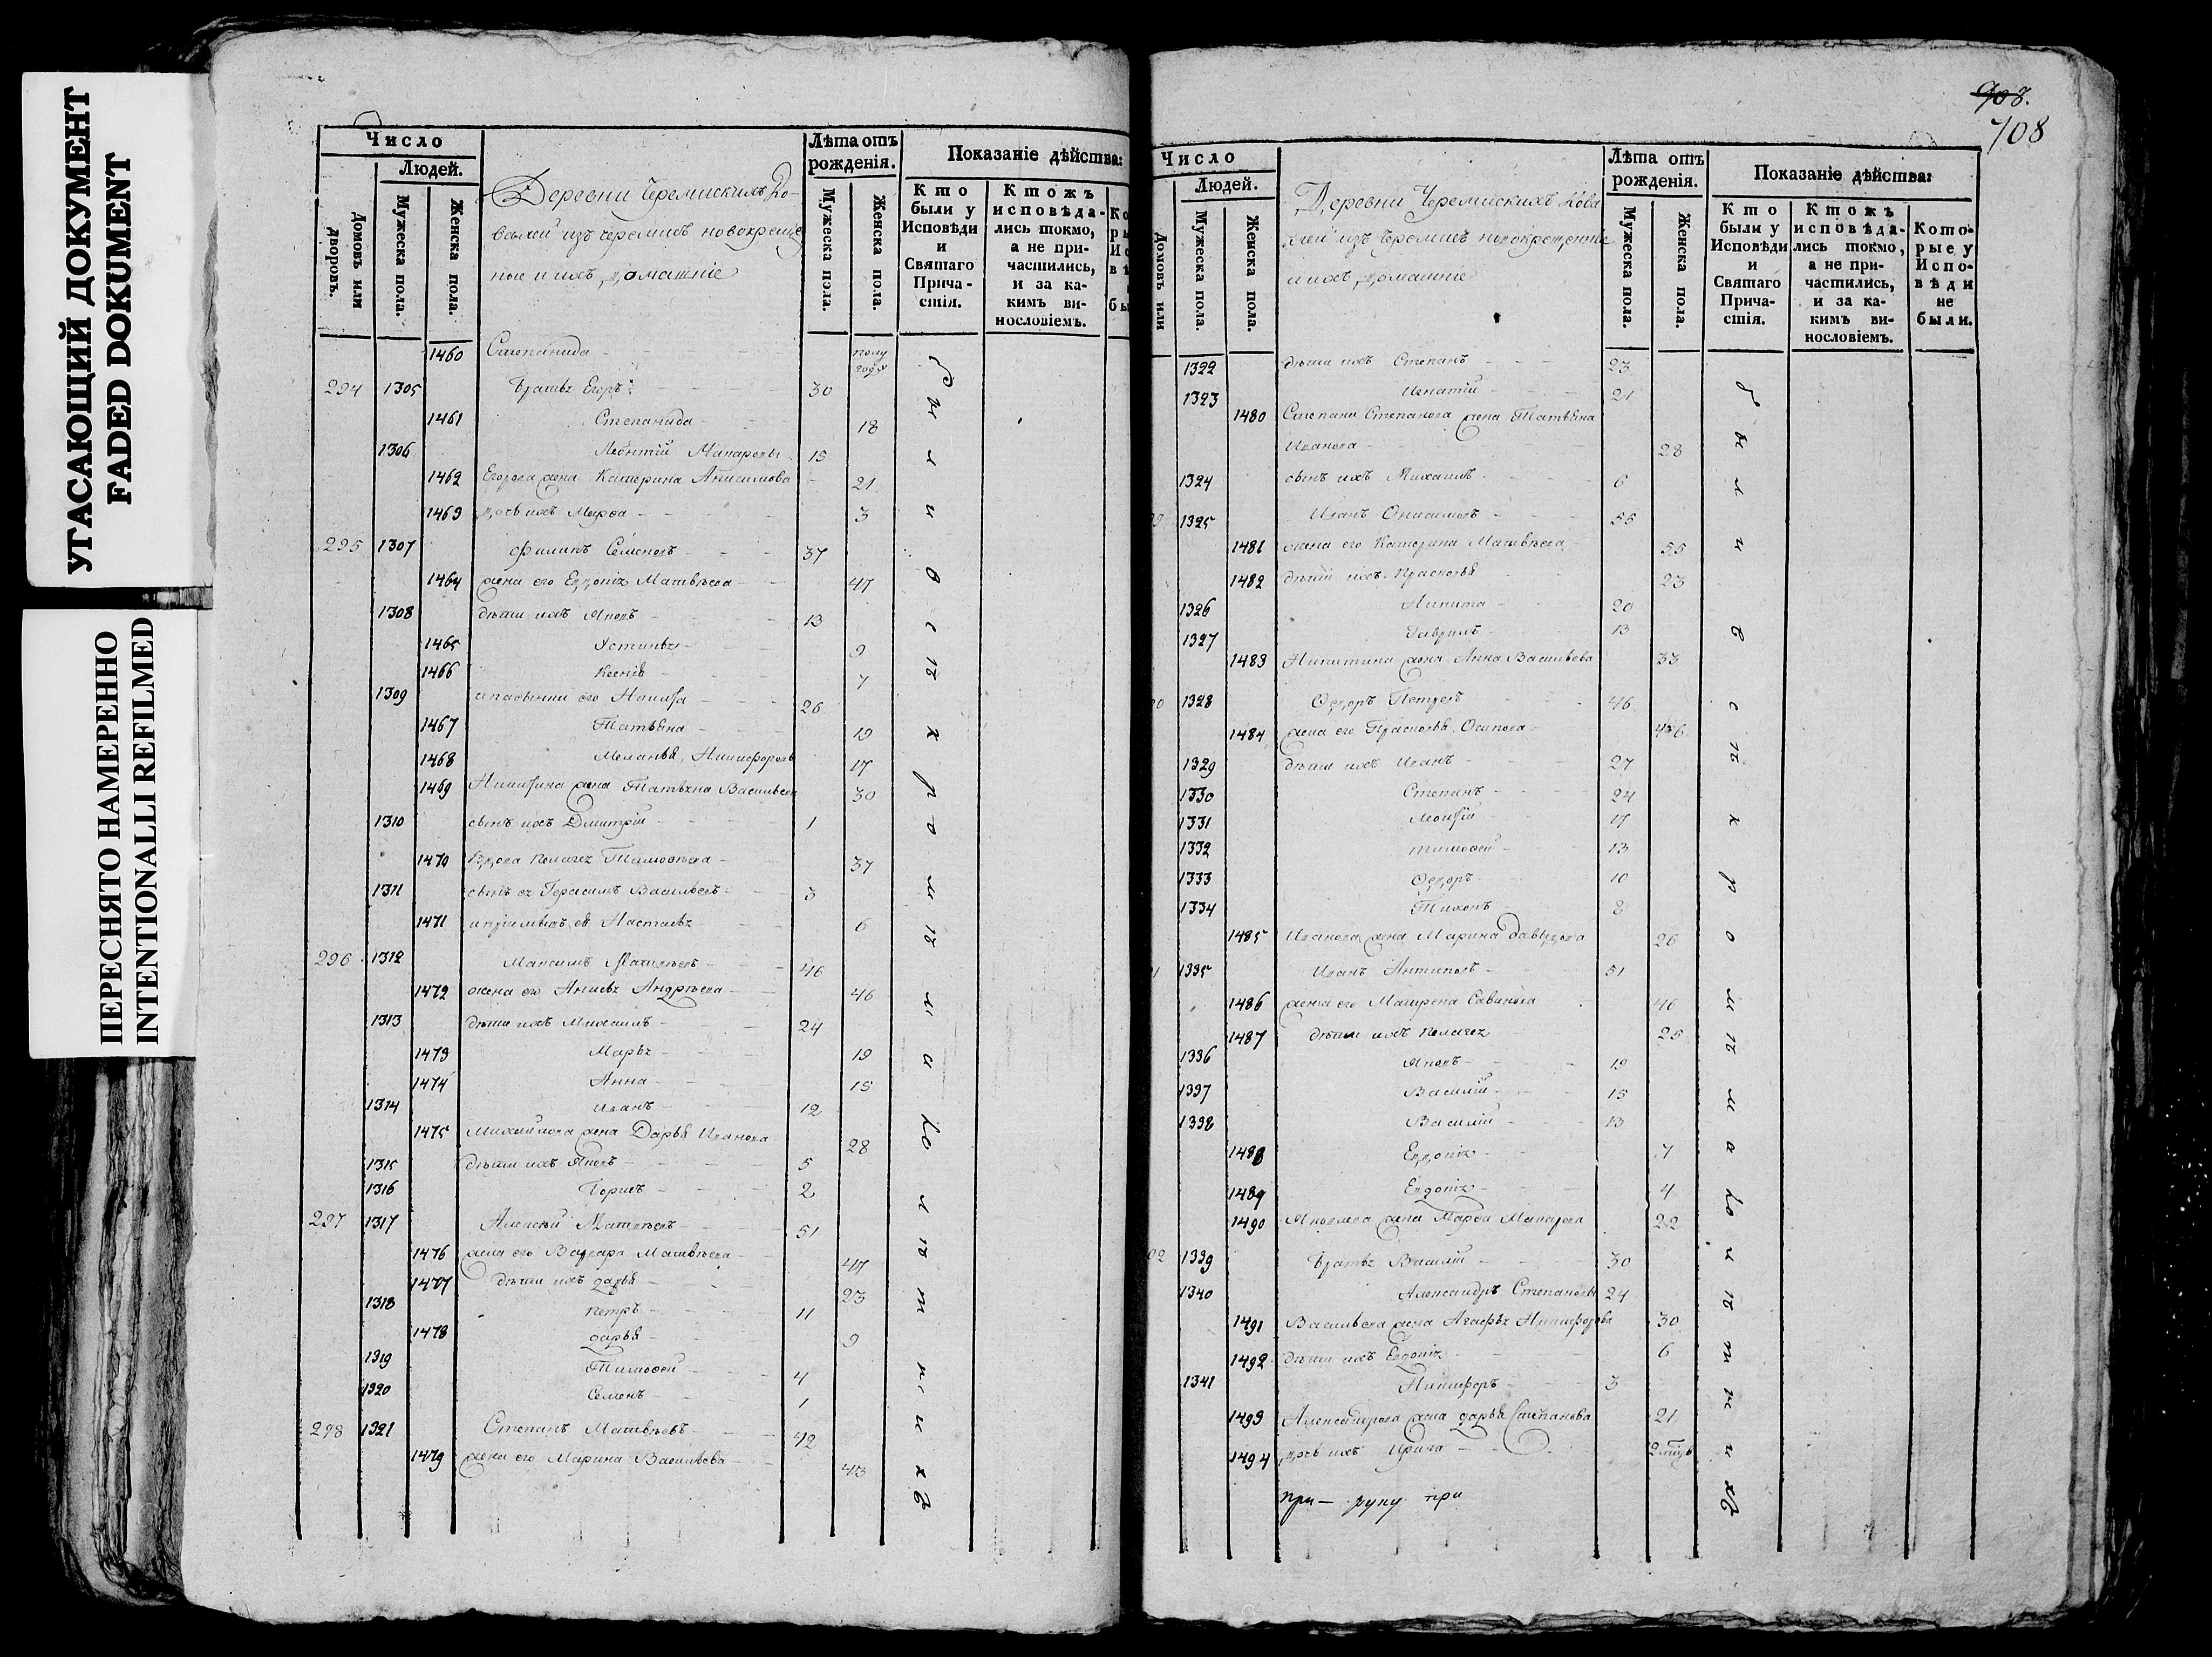 УГАСАЮЩИЙ ДОКУМЕНТ
FADED DOKUMENT
ПЕРЕСНЯТО НАМЕРЕННО
INTENTIONALLI REFILMED
Число
Людей.
Домовъ или дворовъ.
Мужеска пола.
Женска пола.
Деревни Черемискихъ Ко-
валей изъ черемисъ новокреще
ные и ихъ домашнiе
Лѣта отъ рожденія.
Мужеска пола.
Женска пола.
Показаніе дѣйства:
Кто были у Исповѣди и Святаго Причастія.
Ктожъ исповѣдались токмо, а не причастились, и за какимъ винословіемъ.
1460 Степанида полугода
294 1305 Братья Егоръ 30
1461 Степанида 18
1306 Леонтiй Макаровы 15
1462 Егорова жена Катерина Анисимова 21
1463 дочь ихъ Марѳа 3
295 1307 Филипъ Семеновъ 37
1464 жена его Евдокiя Матвѣева 47
1308 дѣти ихъ Яковъ 13
1465 Устинья 9
1466 Ксенiя 7
1309 и пасынки его Никита 26
1467 Татьяна 19
1468 Меланья Никифоровы 17
1469 Никитина жена Татьяна Васильева 30
1310 сынъ ихъ Дмитрiй 1
1470 Вдова Пелагея Тимоѳеева 37
1311 сынъ ея Герасимъ Васильевъ 3
1471 Настасья 6
296 1312 Максимъ Матвѣевъ 46
1472 жена его Анисья Андрѣева 46
1313 дѣти ихъ Михаилъ 24
1473 Марья 19
1474 Анна 15
1314 Иванъ 12
1475 Михайлова жена Дарья Иванова 28
1315 дѣти ихъ Яковъ 5
1316 Борисъ 2
297 1317 Алексѣй Матвѣевъ 51
1476 жена его Варвара Матвѣева 47
1477 дѣти ихъ Дарья 23
1318 Петръ 11
1478 Дарья 9
1319 Тимоѳей 4
1320 Семенъ 1
298 1321 Степанъ Матвѣевъ 42
1479 жена его Марина Васильева 43
были
всѣ
кромѣ
малолѣтнихъ
908.
708
Число
Людей.
Домовъ или
Мужеска пола.
Женска пола.
Деревни Черемискихъ Кова
лей изъ черемисъ новокрещенные
и ихъ домашнiе
Лѣта отъ рожденія.
Мужеска пола.
Женска пола.
Показаніе дѣйства:
Кто были у Исповѣди и Святаго Причастія.
Ктожъ исповѣдались токмо, а не причастились, и за какимъ винословіемъ.
Которые у Исповѣди не были.
1322 дѣти ихъ Степанъ 23
1323 Игнатiй 21
1480 Степана Степанова жена Татьяна
Иванова 28
1324 сынъ ихъ Михаилъ 6
1325 Иванъ Онисимовъ 55
1481 жена его Катерина Матвѣева 55
1482 дѣти ихъ Прасковья 23
1326 Никита 20
1327 Гаврилъ 13
1483 Никитина жена Анна Васильева 33
1328 Ѳедоръ Петровъ 46
1484 жена его Прасковья Осипова 46
1329 дѣти ихъ Иванъ 27
1330 Степанъ 24
1331 17
1332 Тимоѳей 13
1333 Ѳедоръ 10
1334 Тихонъ 8
1485 Иванова жена Марина Давыдова 26
1335 Иванъ Антиповъ 51
1486 жена его Матрена Савинова 46
1487 дѣти ихъ Пелагея 25
1336 Яковъ 19
1337 Василiй 15
1338 Василiй 13
1488 Евдокiя 7
1489 Евдокiя 4
1490 Яковлева жена Марѳа Макарова 22
1339 Братья Василiй 30
1340 Александръ Степановы 24
1491 Васильева жена Агаѳья Никифорова 30
1492 дѣти ихъ Евдокiя 6
1341 Никифоръ 3
1493 Александрова жена Дарья Степанова 21
1494 дочь ихъ Ирина
были
всѣ
кромѣ
малолѣтнихъ
при— руку при